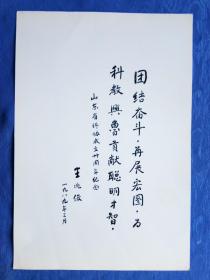 团结奋斗·再展宏图·为
科教興鲁贡献聪明才智·
山东省科协成立卅周年纪念
一九八九年三月